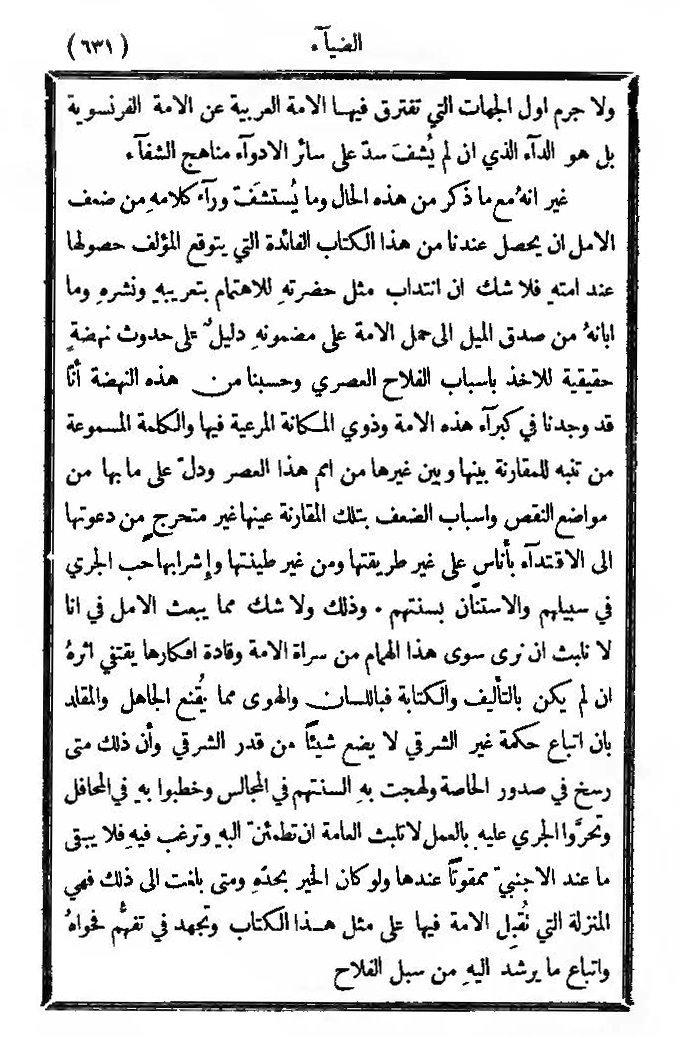 الضيآء
(٦٣١)
ولا جرم اول الجهات التي تفترق فيها الامة العربية عن الامة الفرنسوية
بل هو الدآء الذي ان لم يُشفَ سدّ على سائر الادوآء مناهج الشفآء
غير انهُ مع ما ذكر من هذه الحال وما يُستشفّ ورآء كلامهِ من ضعف
الامل ان يحصل عندنا من هذا الكتاب الفائدة التي يتوقع المؤلف حصولها
عند امتهِ فلا شك ان انتداب مثل حضرتهِ للاهتمام بتعريبهِ ونشرهِ وما
ابانهُ من صدق الميل الى حمل الامة على مضمونهِ دليلٌ على حدوث نهضةٍ
حقيقية للاخذ باسباب الفلاح العصري وحسبنا من هذه النهضة أنّا
قد وجدنا في كبرآء هذه الامة وذوي المكانة المرعية فيها والكلمة المسموعة
من تنبه للمقارنة بينها وبين غيرها من امم هذا العصر ودلّ على ما بها من
مواضع النقص واسباب الضعف بتلك المقارنة عينها غير متحرجٍ من دعوتها
الى الاقتدآء بأناسٍ على غير طريقتها ومن غير طينتها وإشرابها حب الجري
في سبيلهم والاستنان بسنتهم ٠ وذلك ولا شك مما يبعث الامل في انا
لا نلبث ان نرى سوى هذا الهمام من سراة الامة وقادة افكارها يقتفي اثرهُ
ان لم يكن بالتأليف والكتابة فباللسان والهوى مما يُقنع الجاهل والمقلد
بان اتباع حكمة غير الشرقي لا يضع شيئًا من قدر الشرقي وأن ذلك متى
رسخ في صدور الخاصة ولهجت بهِ السنتهم في المجالس وخطبوا بهِ في المحافل
وتحرَّوا الجري عليهِ بالعمل لا تلبث العامة ان تطمئنّ اليهِ وترغب فيهِ فلا يبقى
ما عند الاجنبيّ ممقوتًا عندها ولو كان الخير بحدّهِ ومتى بلغت الى ذلك فهي
المنزلة التي تُقبِل الامة فيها على مثل هذا الكتاب وتجهد في تفهُّم فحواهُ
واتباع ما يرشد اليهِ من سبل الفلاح